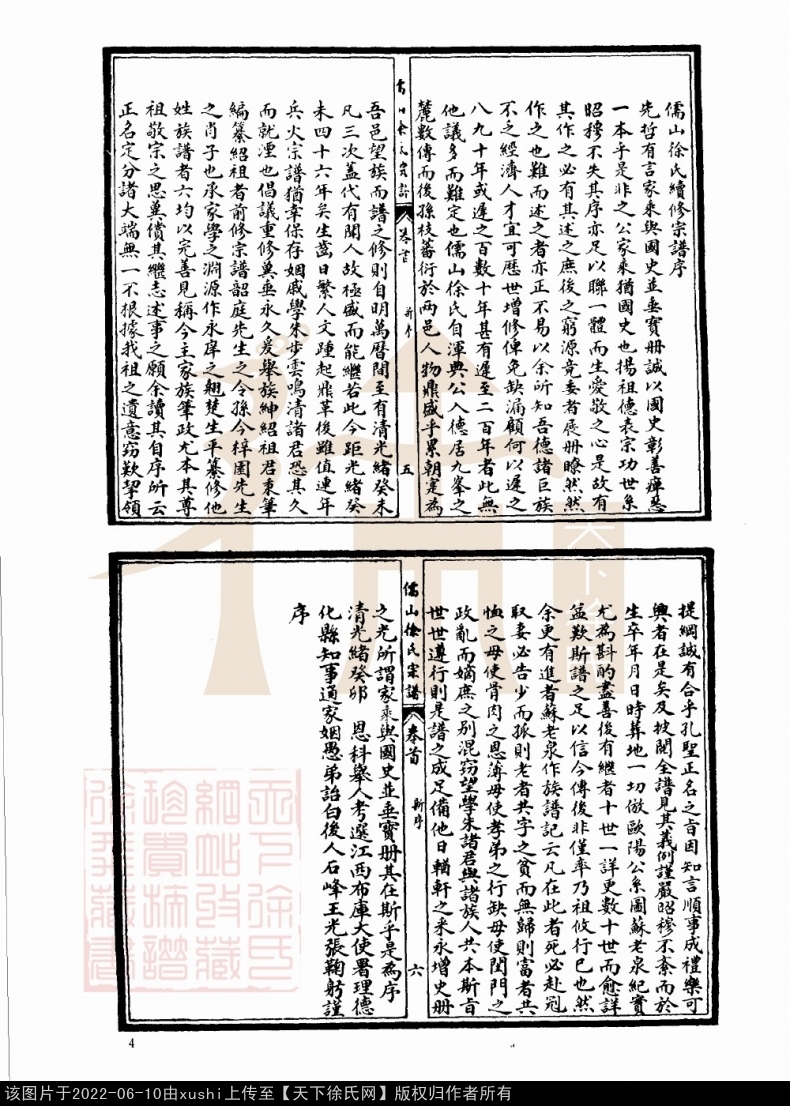 儒山徐氏續修宗譜序
先哲有言家乘與國史並垂寶册誠以國史彰善癉惡
一本乎是非之公家乘猶國史也揚祖德表宗功世系
昭穆不失其序亦足以聯一體而生愛敬之心是故有
其作之必有其述之庶後之窮源竟委者展册瞭然然
作之也難而述之者亦正不易以余所知吾德諸巨族
不乏經濟人才宜可歷世增修俾免缺漏顧何以遲之
八九十年或遲之百數十年甚有遲至二百年者此無
他議多而難定也儒山徐氏自渾典公入德居九峯之
麓數傳而後孫枝蕃衍於兩邑人物鼎盛乎累朝寔為
儒山徐氏宗譜
卷首
新序
五
吾邑望族而譜之修則自明萬曆閱至有清光緒癸未
凡三次蓋代有聞人故極盛而能繼若此今距光緒癸
未四十六年矣生齒日繁人文踵起鼎革後雖值連年
兵火宗譜猶幸保存姻戚學朱步雲鳴清諸君恐其久
而就湮也倡議重修冀垂永久爰舉族紳紹祖君秉筆
編纂紹祖者前修宗譜韶庭先生之令孫今梓園先生
之肖子也承家學之淵源作永庠之翹楚生平纂修他
姓族譜者六均以完善見稱今主家族筆政尤本其尊
祖敬宗之思冀償其繼志述事之願余讀其自序所云
正名定分諸大端無一不根據我祖之遺意竊歎挈領
提綱誠有合乎孔聖正名之旨因知言順事成禮樂可
興者在是矣及披閱全譜見其義例謹嚴昭穆不紊而於
生卒年月日時葬地一切倣歐陽公系圖蘇老泉紀實
尤為斟酌盡善後有繼者十世一詳更數十世而愈詳
益歎斯譜之足以信今傳後非僅率乃祖攸行已也然
余更有進者蘇老泉作族譜記云凡在此者死必赴冠
娶妻必告少而孤則老者共字之貧而無歸則富者共
恤之毋使骨肉之恩薄毋使孝弟之行缺毋使閨門之
政亂而嫡庶之別混竊望學朱諸君與諸族人共本斯旨
世世遵行則是譜之成足備他日輶軒之采永增史册
儒山徐氏宗譜
卷首
新序
六
之光所謂家乘與國史並垂寶册其在斯乎是為序
清光緒癸卯 恩科舉人考選江西布庫大使署理德
化縣知事通家姻愚弟詒白後人石峰王光張鞠躬謹
序
天下徐氏
網站收藏
珍貴族譜
徐業藏書
4
该图片于2022-06-10由xushi上传至【天下徐氏网】版权归作者所有